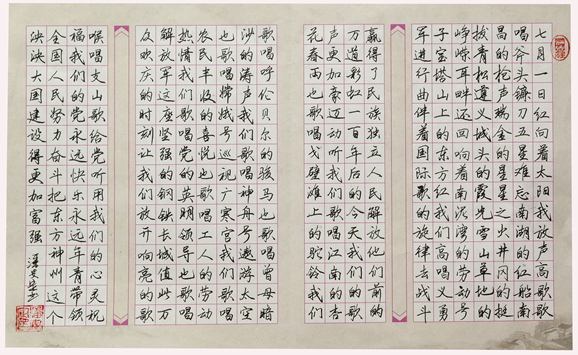 七月一日红向着太阳我放声高歌歌
唱斧头镰刀五星难忘南湖的红船南
昌的枪声瑞金的星星之火井冈的挺
拔青松遵义城头的霞光雪山草地的
峥嵘耳畔还回响着南泥湾的劳动号
子宝塔山上的东方红我们高唱义勇
军进行曲伴着国际歌的旋律去战斗
赢得了民族独立人民解放他们前的
万道彩虹一百年后的今天我们的歌
声更加豪迈动听我们歌唱江南的杏
花春雨也歌唱戈壁滩上的驼铃我们
歌唱呼伦贝尔的骏马也歌唱曾母暗
沙的涛声我们歌唱神舟号遨游太空
也歌唱嫦娥号巡视广寒宫我们歌唱
农民丰收的喜悦也歌唱工人的劳动
热情我们歌唱党的英明领导也歌唱
解放军这坚强的钢铁长城值此万
众欢庆的时刻让我们放开响亮的
喉唱支山歌给党听用我们的心灵祝
福我们的党永远快乐永远年青带领
全国人民努力奋斗把东方神州这个
泱泱大国建设得更加富强